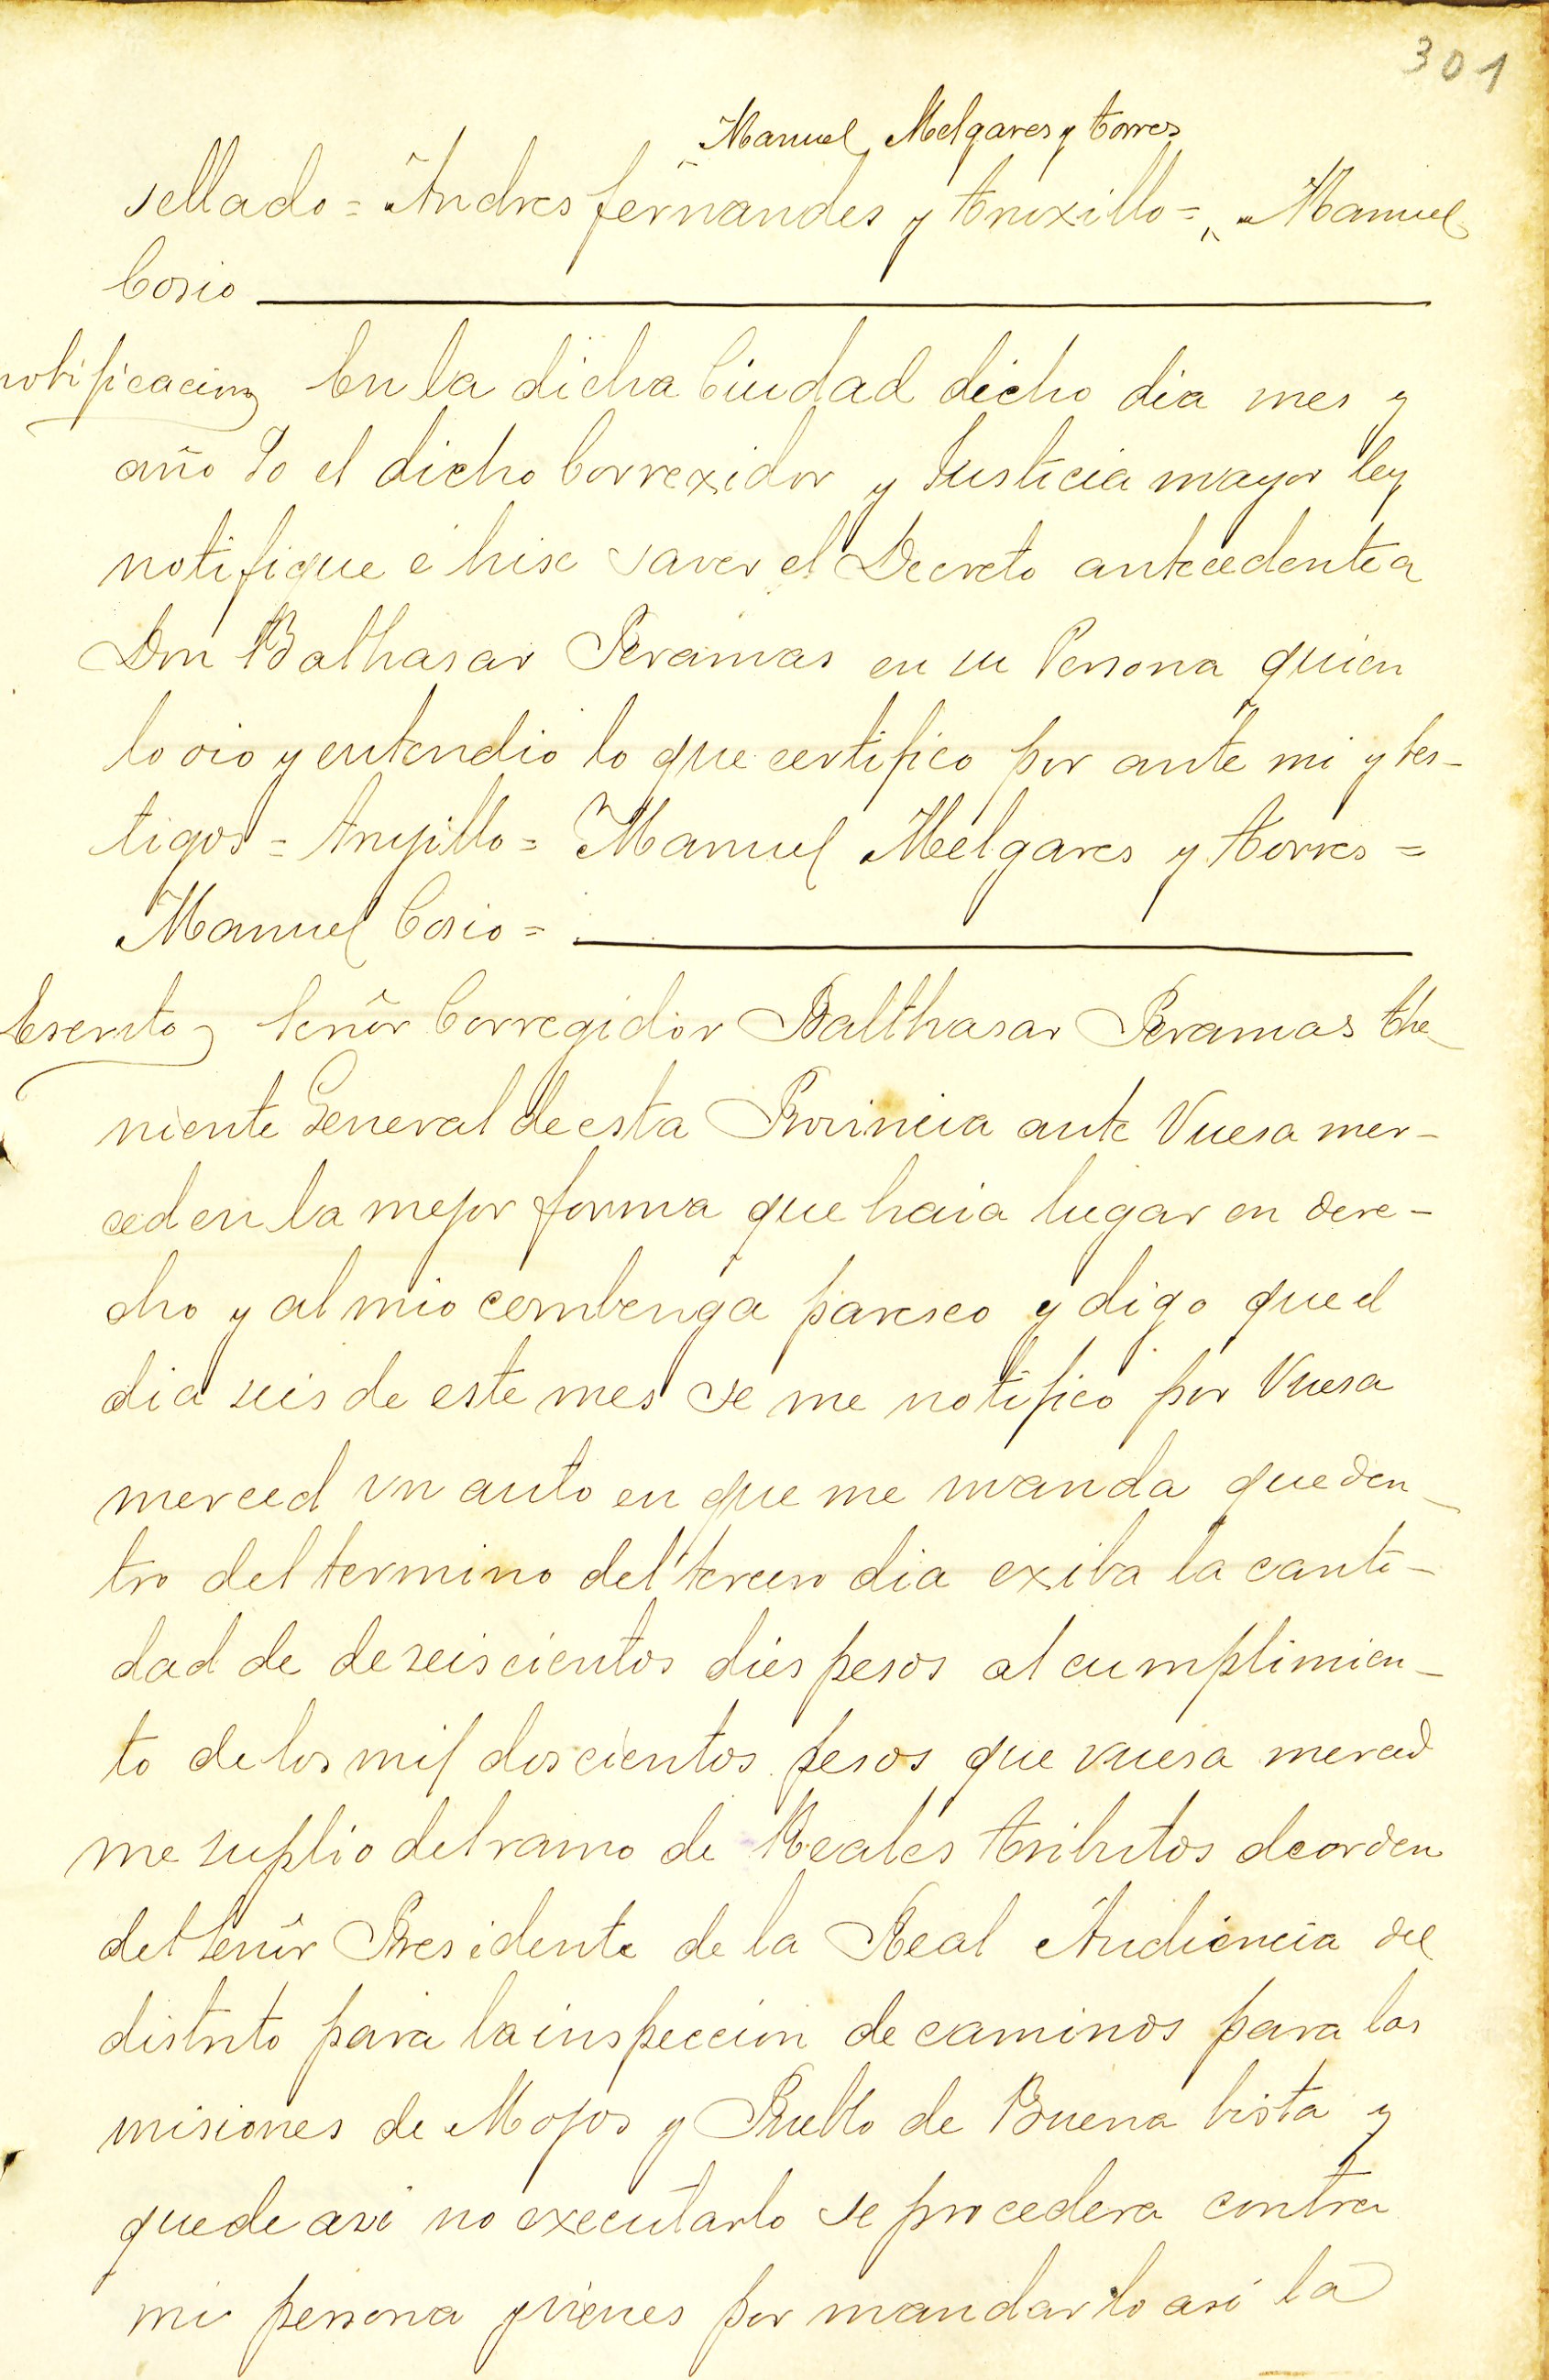 301
Manuel Melgares y torres
sellado = Andres fernandes y truxillo = Manuel
Cosio
notificacion En la dicha Ciudad dicho dia mes y
año Yo el dicho Correxidor y Justicia mayor ley
notifique é hise saver el Decreto antecedente a
Don Balthasar Peramas en su Persona quien
lo oio y entendio lo que certifico por ante mi y tes-
tigos = trujillo = Manuel Melgares y torres =
Manuel Cosio =
Escrito Señor Corregidor Balthasar Peramas the-
niente General de esta Provincia ante Vuesa mer-
ced en la mejor forma que haia lugar en dere-
cho y al mio combenga paresco y digo que el
dia seis de este mes se me notifico por Vuesa
merced vn auto en que me manda que den-
tro del termino del tercero dia exiba la canti-
dad de de seiscientos dies pesos al cumplimien-
to de los mil doscientos pesos que vuesa merced
me suplio del ramo de Reales tributos de orden
del Señor Presidente de la Real Audiencia del
distrito para la inspeccion de caminos para las
misiones de Mojos y Pueblo de Buena bista y
que de asi no executarlo se procedera contra
mi persona y vienes por mandarlo asi la